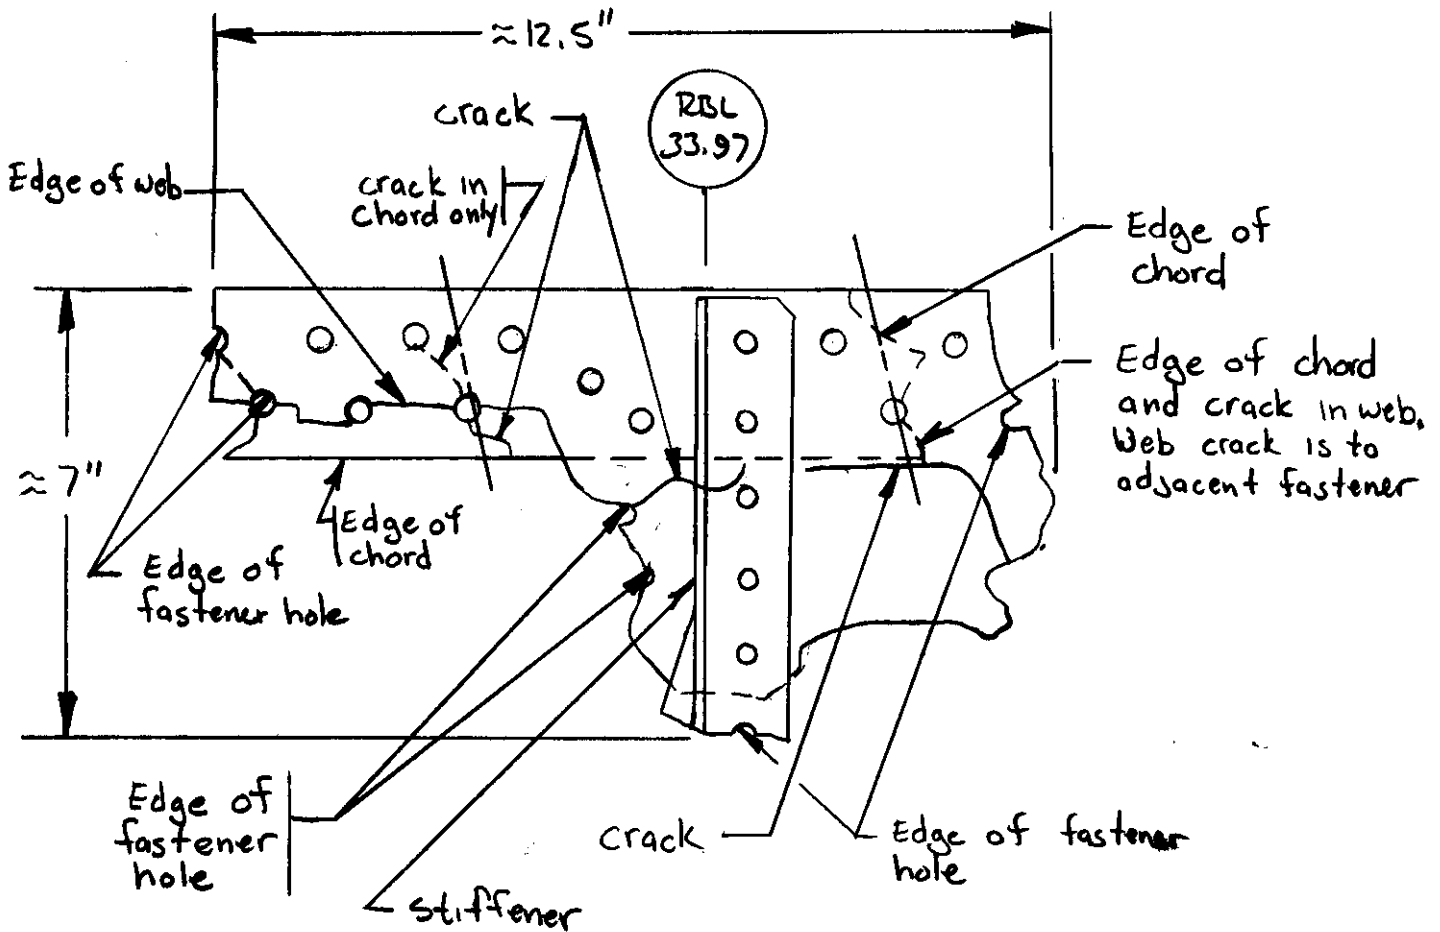 ≈12.5"
crack
RBL
33.97
Edge of web
crack in
chord only
Edge of
chord
Edge of chord
and crack in web.
Web crack is to
adjacent fastener
≈7"
Edge of
chord
Edge of
fastener hole
Edge of
fastener
hole
crack
Edge of fastener
hole
stiffener